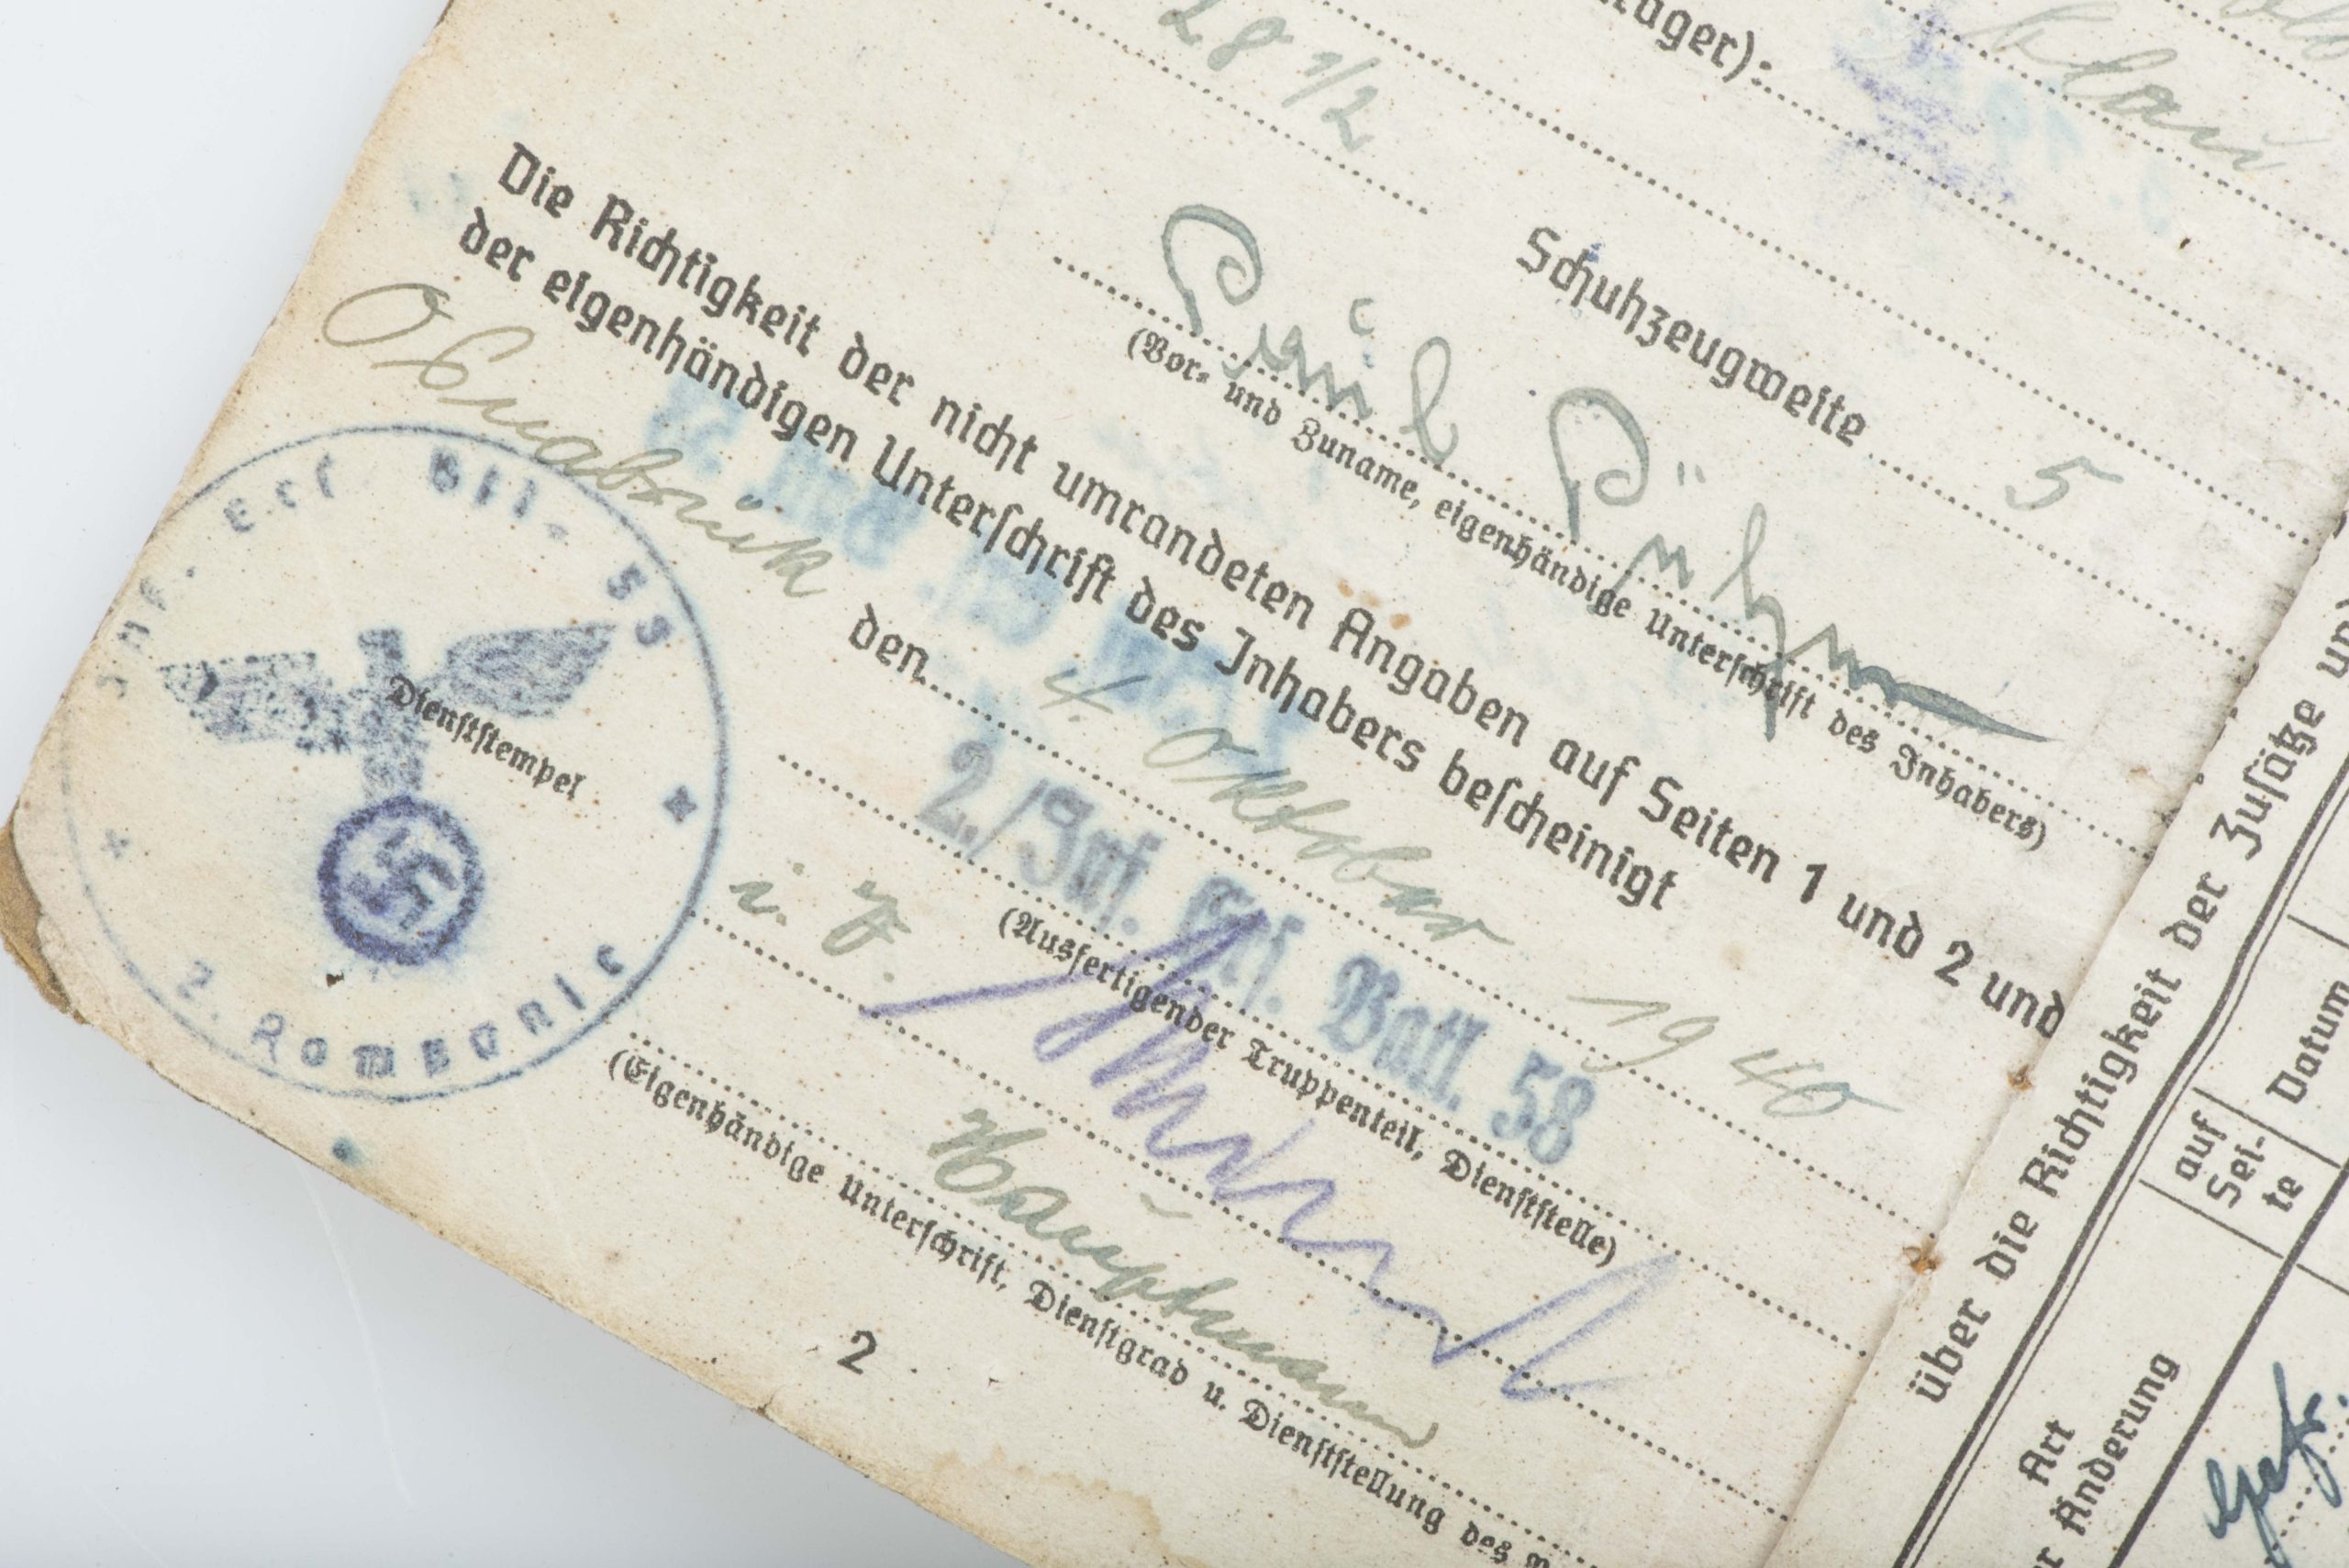 blau
räger):
28 1/2
Schuhzeugweite 5
Paul
(Vor- und Zuname, eigenhändige Unterschrift des Inhabers)
Die Richtigkeit der nicht umrandeten Angaben auf Seiten 1 und 2 und
der eigenhändigen Unterschrift des Inhabers bescheinigt
Osnabrück den 4. Oktober 1940
2./Inf. Ers. Batl. 58
(Ausfertigender Truppenteil, Dienststelle)
Hauptmann
(Eigenhändige Unterschrift, Dienstgrad u. Dienststellung des
Dienststempel
Inf. Ers Btl. 58
2. Kompanie
2
über die Richtigkeit der Zusätze un
Art
r Änderung
auf
Sei-
te
Datum
Gefr.